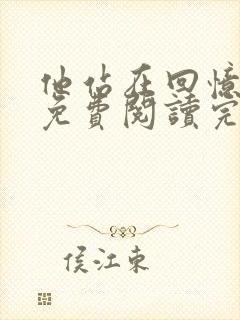 他佔在回憶
免費閱讀完
侯江東